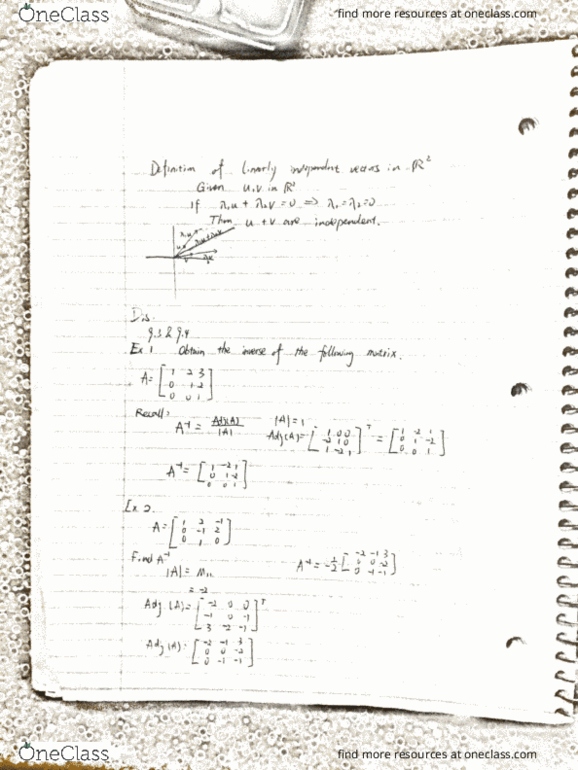 OneClass
find more resources at oneclass.com
Definition of linearly independent vectors in ℝ²
Given u,v in ℝ²
If λ₁u + λ₂v = 0 ⟹ λ₁=λ₂=0
Then u + v are independent.
λ₁u
λ₁u+λ₂v
u
v
λ₂v
Dis.
9.3 & 9.4
Ex 1 Obtain the inverse of the following matrix.
A = [ 1 2 3
0 1 2
0 0 1 ]
Recall:
A⁻¹ = Adj(A) / |A|
|A| = 1
Adj(A) = [ 1 0 0
-2 1 0
1 -2 1 ]ᵀ = [ 1 -2 1
0 1 -2
0 0 1 ]
A⁻¹ = [ 1 -2 1
0 1 -2
0 0 1 ]
Ex 2.
A = [ 1 2 -1
0 -1 2
0 1 0 ]
Find A⁻¹
|A| = M₁₁
= -2
A⁻¹ = -1/2 [ -2 -1 3
0 0 -2
0 -1 -1 ]
Adj (A) = [ -2 0 0
-1 0 -1
3 -2 -1 ]ᵀ
Adj (A) = [ -2 -1 3
0 0 -2
0 -1 -1 ]
OneClass
find more resources at oneclass.com